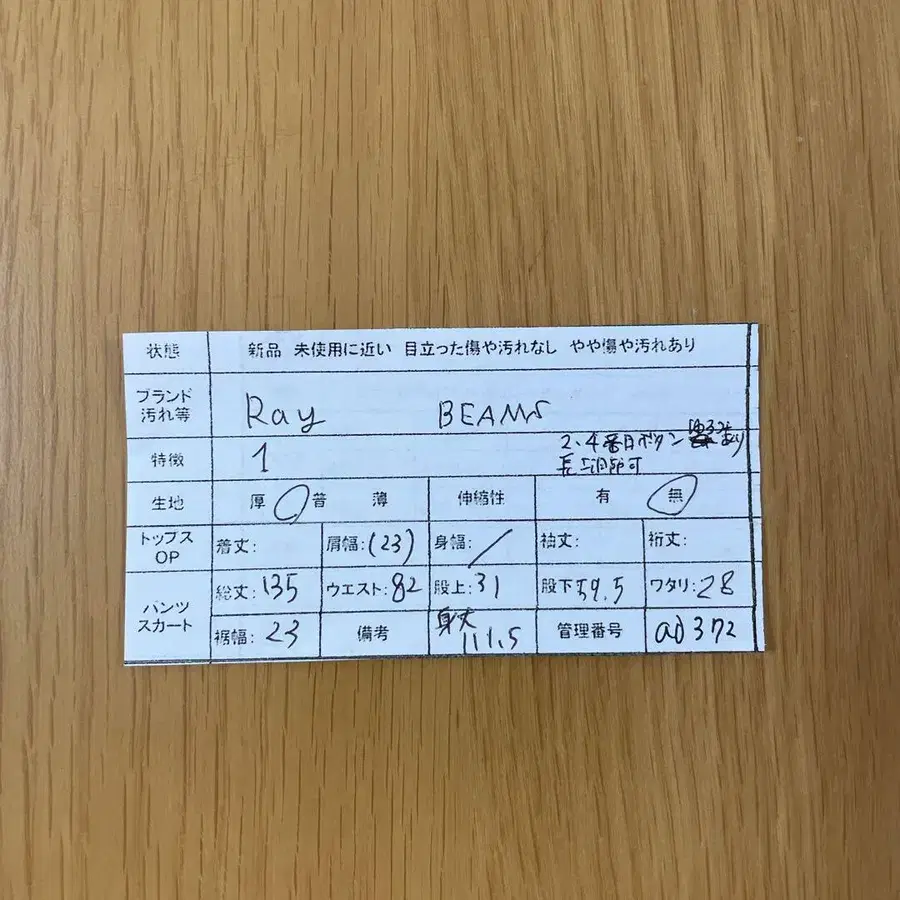 状態 新品 未使用に近い 目立った傷や汚れなし やや傷や汚れあり
ブランド
汚れ等 Ray BEAMS
特徴 1 2、4番目ボタンゆるみあり
長さ調節可
生地 厚 普 薄 伸縮性 有 無
トップス
OP 着丈: 肩幅:(23) 身幅:/ 袖丈: 裄丈:
パンツ
スカート 総丈:135 ウエスト:82 股上:31 股下59.5 ワタリ:28
裾幅:23 備考 身丈
111.5 管理番号 a0372